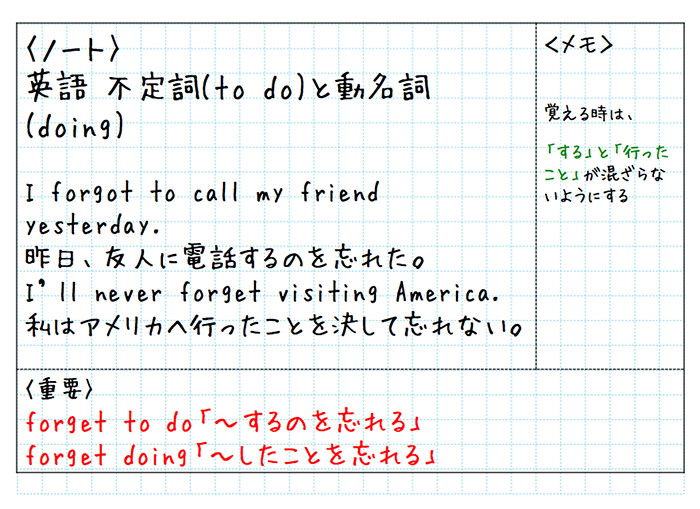 〈ノート〉
英語 不定詞(to do)と動名詞
(doing)
I forgot to call my friend
yesterday.
昨日、友人に電話するのを忘れた。
I'll never forget visiting America.
私はアメリカへ行ったことを決して忘れない。
<メモ>
覚える時は、
「する」と「行った
こと」が混ざらな
いようにする
〈重要〉
forget to do「～するのを忘れる」
forget doing「～したことを忘れる」